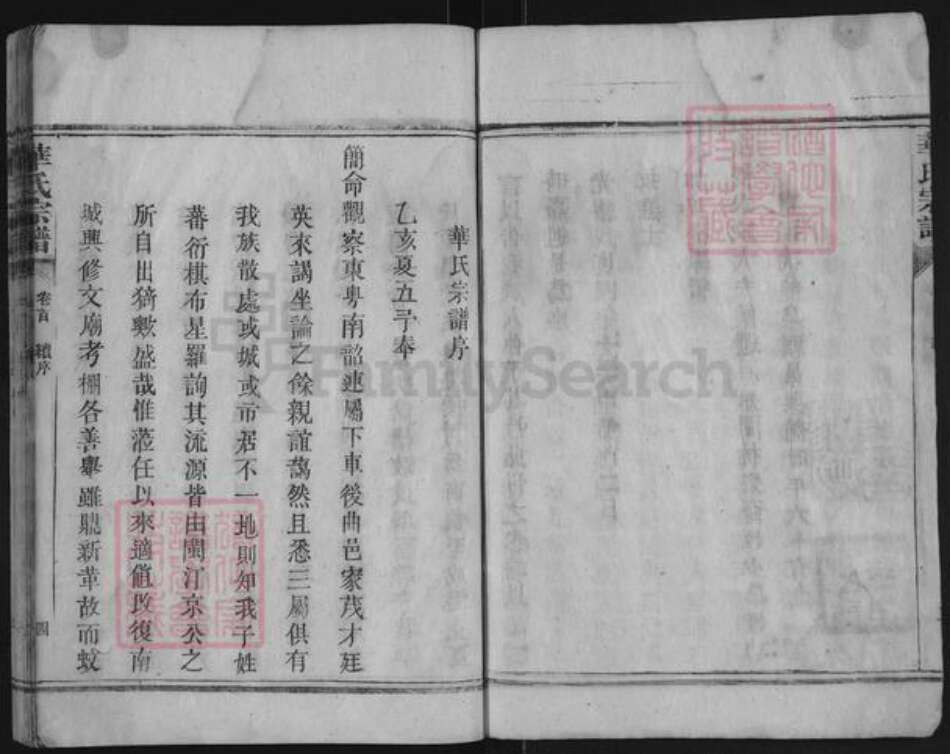 華氏宗譜
華氏宗譜序
乙亥夏五予奉
簡命觀察東粵南韶連屬下車後曲邑家茂才廷
英來謁坐論之餘親誼藹然且悉三屬俱有
我族散處或城或市居不一地則知我子姓
蕃衍棋布星羅詢其流源皆由閩汀京公之
所自出猗歟盛哉惟蒞任以來適值改復南
城興修文廟考棚各善舉雖鼎新革故而蚊
華氏宗譜
卷首
續序
四
FamilySearch